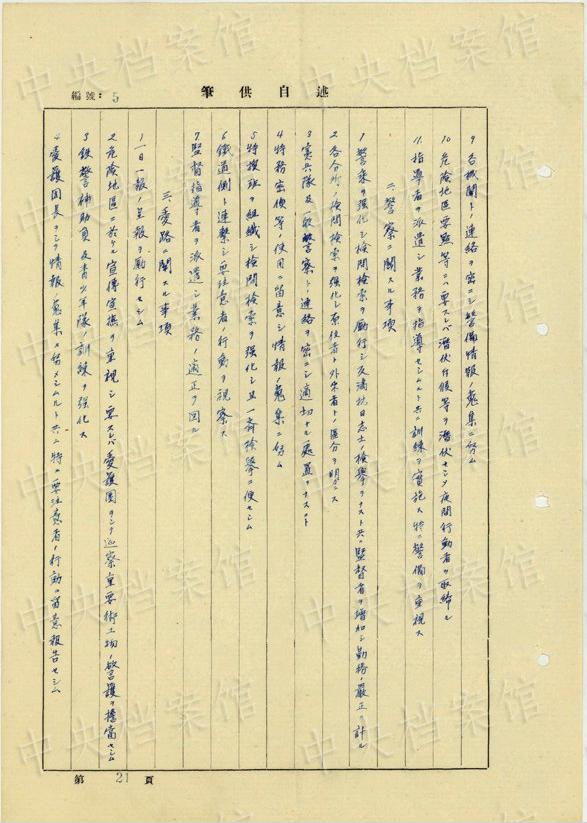 述自供筆
編號：5
9 各機関トノ連絡ヲ密ニシ警備情報ノ蒐集ニ努ム
10 危険地區要點等ニハ要スレバ潜伏斥候等ヲ潜伏セシメ夜間行動者ヲ取締ル
11 指導者ヲ派遣シ業務ヲ指導セシムルト共ニ訓練ヲ実施ス特ニ警備ヲ重視ス
二、警察ニ関スル事項
1 警乗ヲ強化シ検問検索ヲ励行シ反満抗日志士ノ検挙ヲナスト共ニ監督者ヲ増加シ勤務ノ厳正ヲ計ル
2 各合所ノ検問検索ヲ強化シ居住者ト外来者トノ區分ヲ明ニス
3 憲兵隊及一般警察トノ連絡ヲ密ニシ適切ナル処置ヲナスコト
4 特務密偵等ノ使用ニ留意シ情報ノ蒐集ニ努ム
5 特捜班ヲ組織シ検問検索ヲ強化シ且一斉検挙ニ便セシム
6 鉄道側ト連繋シ要注意者ノ行動ヲ視察ス
7 監督指導者ヲ派遣シ業務ノ適正ヲ図ル
三、愛路ニ関スル事項
1 一日一報ノ呈報ヲ励行セシム
2 危険地區ニ於ケル宣傳宣撫ヲ重視シ要スレバ愛護団ヲシテ巡察重要術工物ノ警護ヲ擔當セシム
3 鉄警補助員及青少年隊ノ訓練ヲ強化ス
4 愛護団長ヲシテ情報ノ蒐集ニ努メシムルト共ニ特ニ要注意者ノ行動ニ留意報告セシム
第 21 頁
中央档案馆